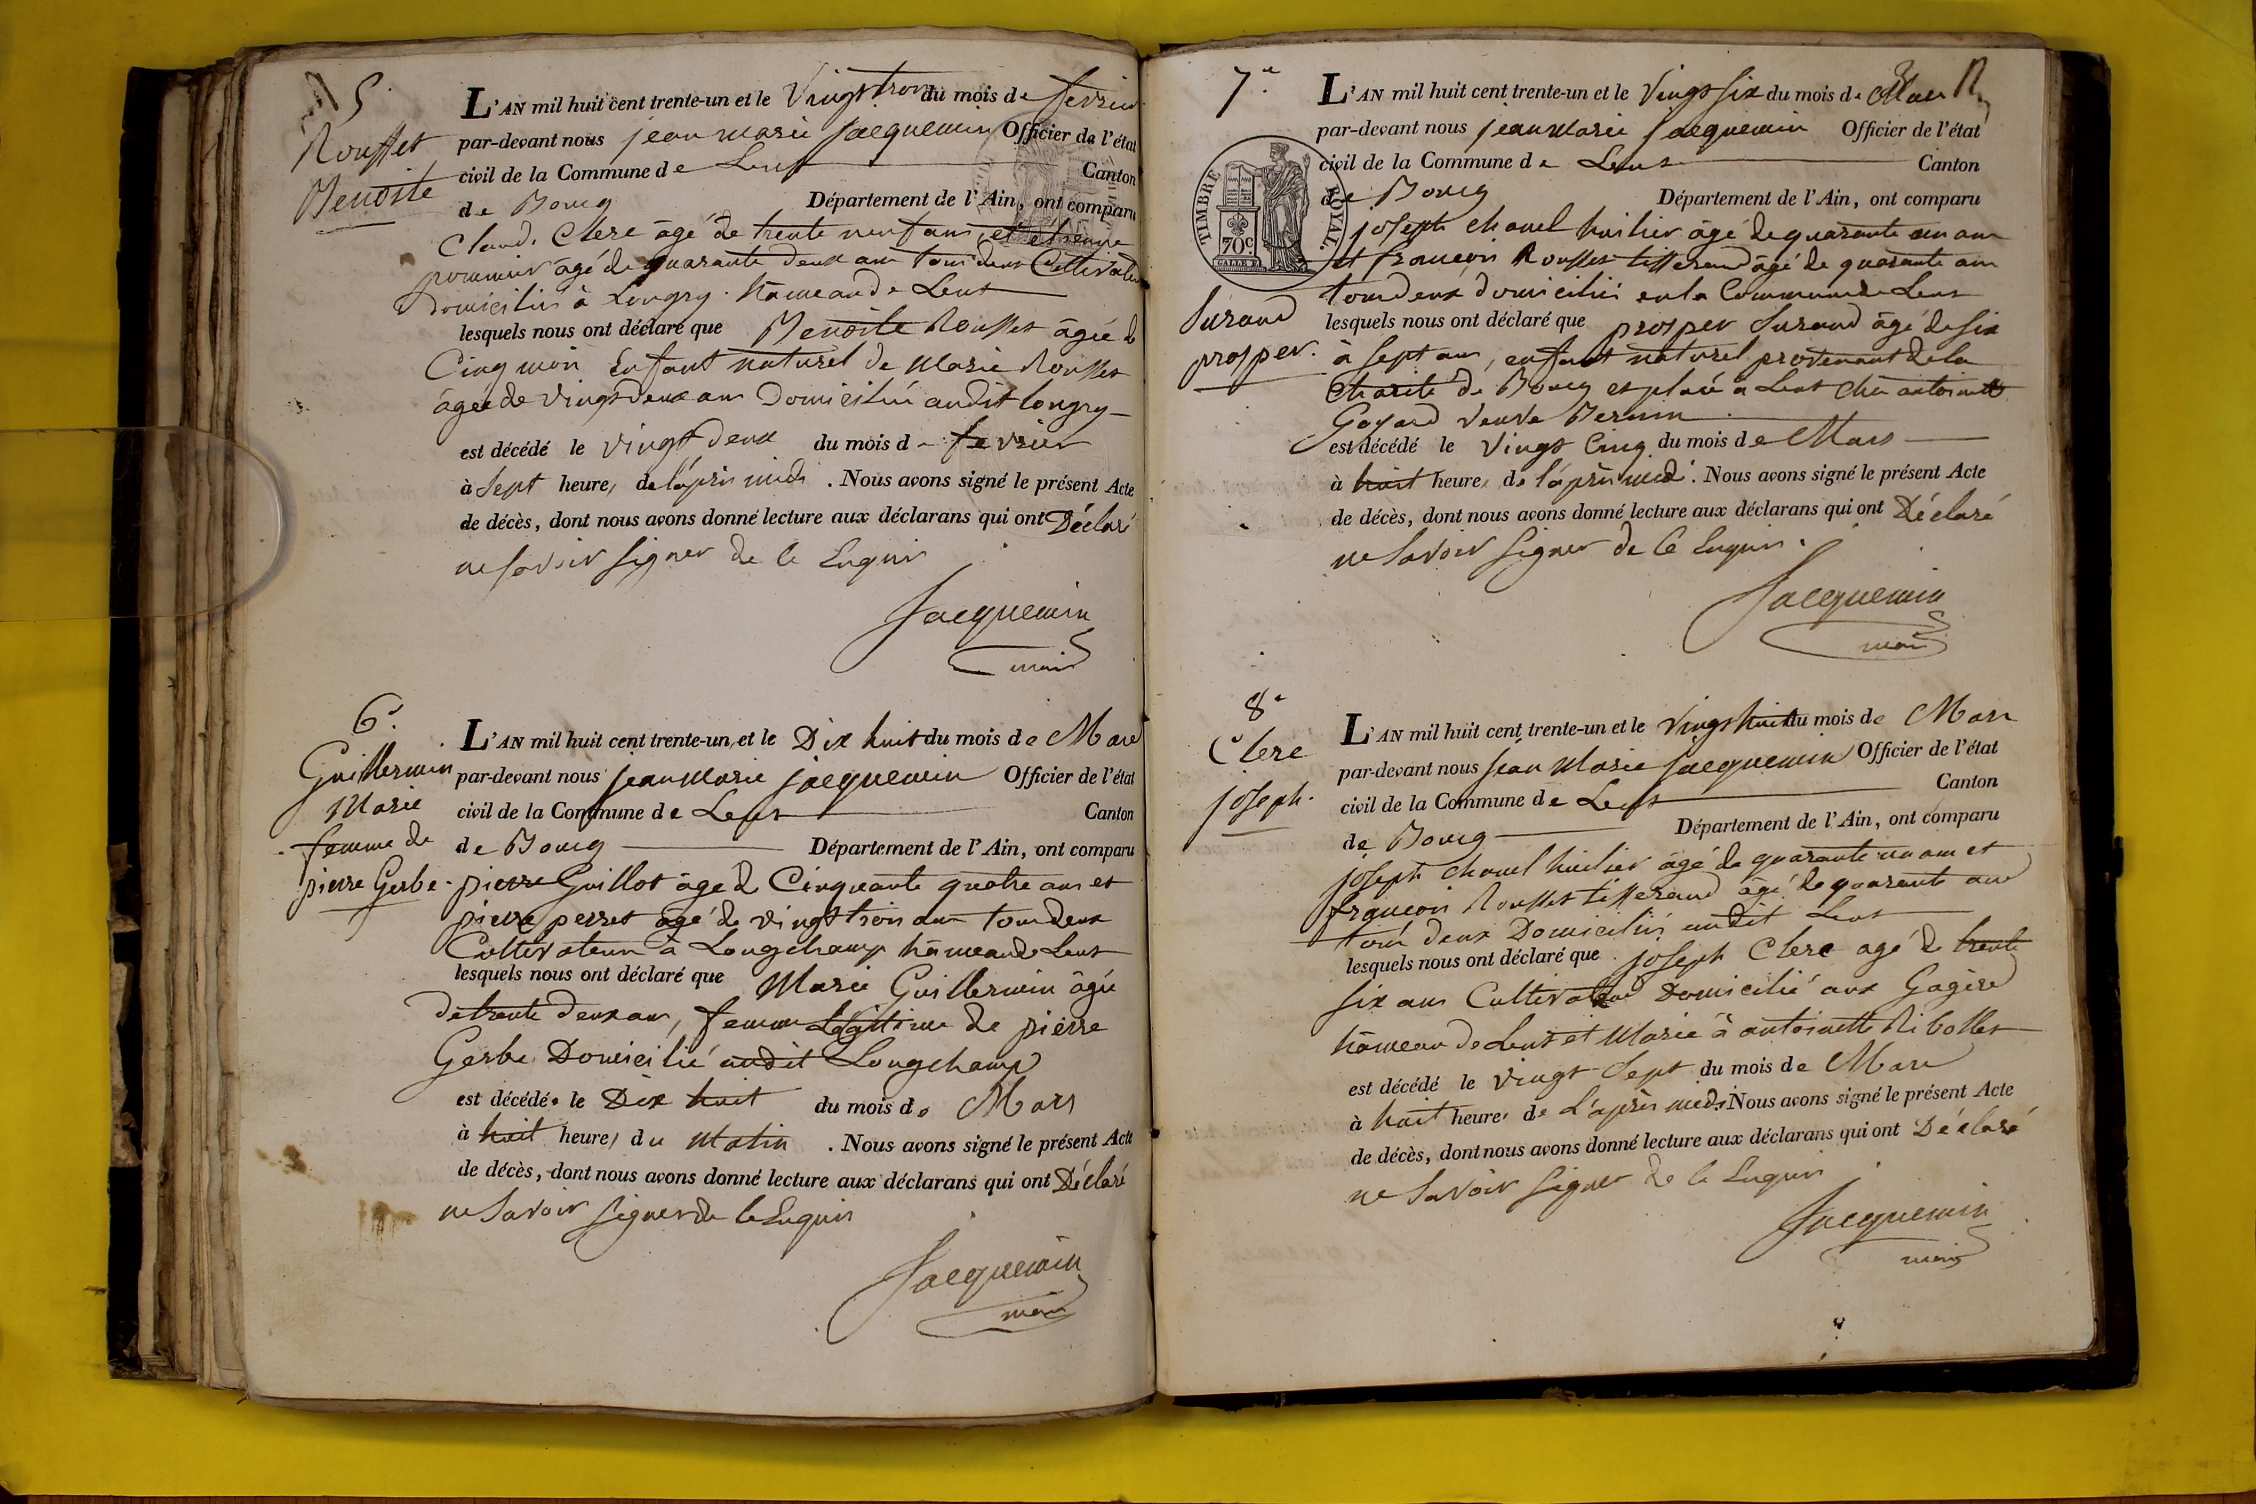 5.
Rousset
Benoite
L'AN mil huit cent trente-un et le Vingt trois du mois de fevrier
par-devant nous jean marie Jacquemin Officier de l'état
civil de la Commune de Lent Canton
de Bourg Département de l'Ain, ont comparu
Claude Clerc âgé de trente neuf ans, et etienne
pommier âgé de quarante deux ans tous deux Cultivateurs
domiciliés à Longry hameau de Lent
lesquels nous ont déclaré que Benoite Rousset âgée de
Cinq mois Enfant naturel de Marie Rousset
âgée de vingt deux ans Domiciliée audit longry
est décédé le vingt deux du mois de fevrier
à Sept heures de l'après midi. Nous avons signé le présent Acte
de décès, dont nous avons donné lecture aux déclarans qui ont Déclaré
ne savoir signer de ce Enquis
Jacquemin
maire
6e.
Guillermin
Marie
femme de
pierre Gerbe.
L'AN mil huit cent trente-un, et le Dix huit du mois de Mars
par-devant nous jean Marie jacquemin Officier de l'état
civil de la Commune de Lent Canton
de Bourg Département de l'Ain, ont comparu
pierre Guillot âgé de Cinquante quatre ans et
pierre perret âgé de vingt trois ans tous deux
Cultivateurs à Longchamp hameau de Lent
lesquels nous ont déclaré que Marie Guillermin âgée
de trente deux ans, femme Légitime de pierre
Gerbe Domicilié audit Longchamp
est décédée le Dix huit du mois de Mars
à huit heures du Matin. Nous avons signé le présent Acte
de décès, dont nous avons donné lecture aux déclarans qui ont Déclaré
ne Savoir Signer de ce Enquis
Jacquemin
maire
7e.
L'AN mil huit cent trente-un et le Vingt six du mois de Mars
par-devant nous jean Marie jacquemin Officier de l'état
civil de la Commune de Lent Canton
de Bourg Département de l'Ain, ont comparu
TIMBRE ROYAL.
70c
joseph chanel huilier âgé de quarante un ans
et françois Rousset tisserand âgé de quarante ans
tous deux domiciliés en la Commune de Lent
Surand
prosper.
lesquels nous ont déclaré que prosper Surand âgé de six
à sept ans, enfant naturel provenant de la
Charité de Bourg et placé à Lent chez antoinette
Goyard veuve Bernin
est décédé le Vingt Cinq du mois de Mars
à huit heures de l'après midi. Nous avons signé le présent Acte
de décès, dont nous avons donné lecture aux déclarans qui ont Déclaré
ne Savoir Signer de Ce Enquis.
Jacquemin
maire
8e
Clerc
joseph.
L'AN mil huit cent trente-un et le Vingt huit du mois de Mars
par-devant nous jean Marie jacquemin Officier de l'état
civil de la Commune de Lent Canton
de Bourg Département de l'Ain, ont comparu
joseph chanel huilier âgé de quarante un ans et
françois Rousset tisserand âgé de quarante ans
tous deux Domiciliés audit Lent
lesquels nous ont déclaré que joseph Clerc agé de trente
six ans Cultivateur Domicilié aux Gagère
hameau de Lent et Marié à antoinette Ribollet
est décédé le vingt Sept du mois de Mars
à huit heures de L'après midi. Nous avons signé le présent Acte
de décès, dont nous avons donné lecture aux déclarans qui ont Déclaré
ne Savoir Signer de Ce Enquis
Jacquemin
maire